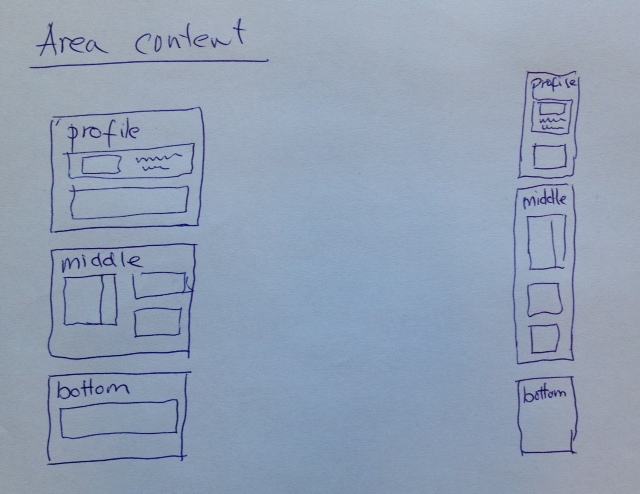 Area content
profile
middle
bottom
profile
middle
bottom